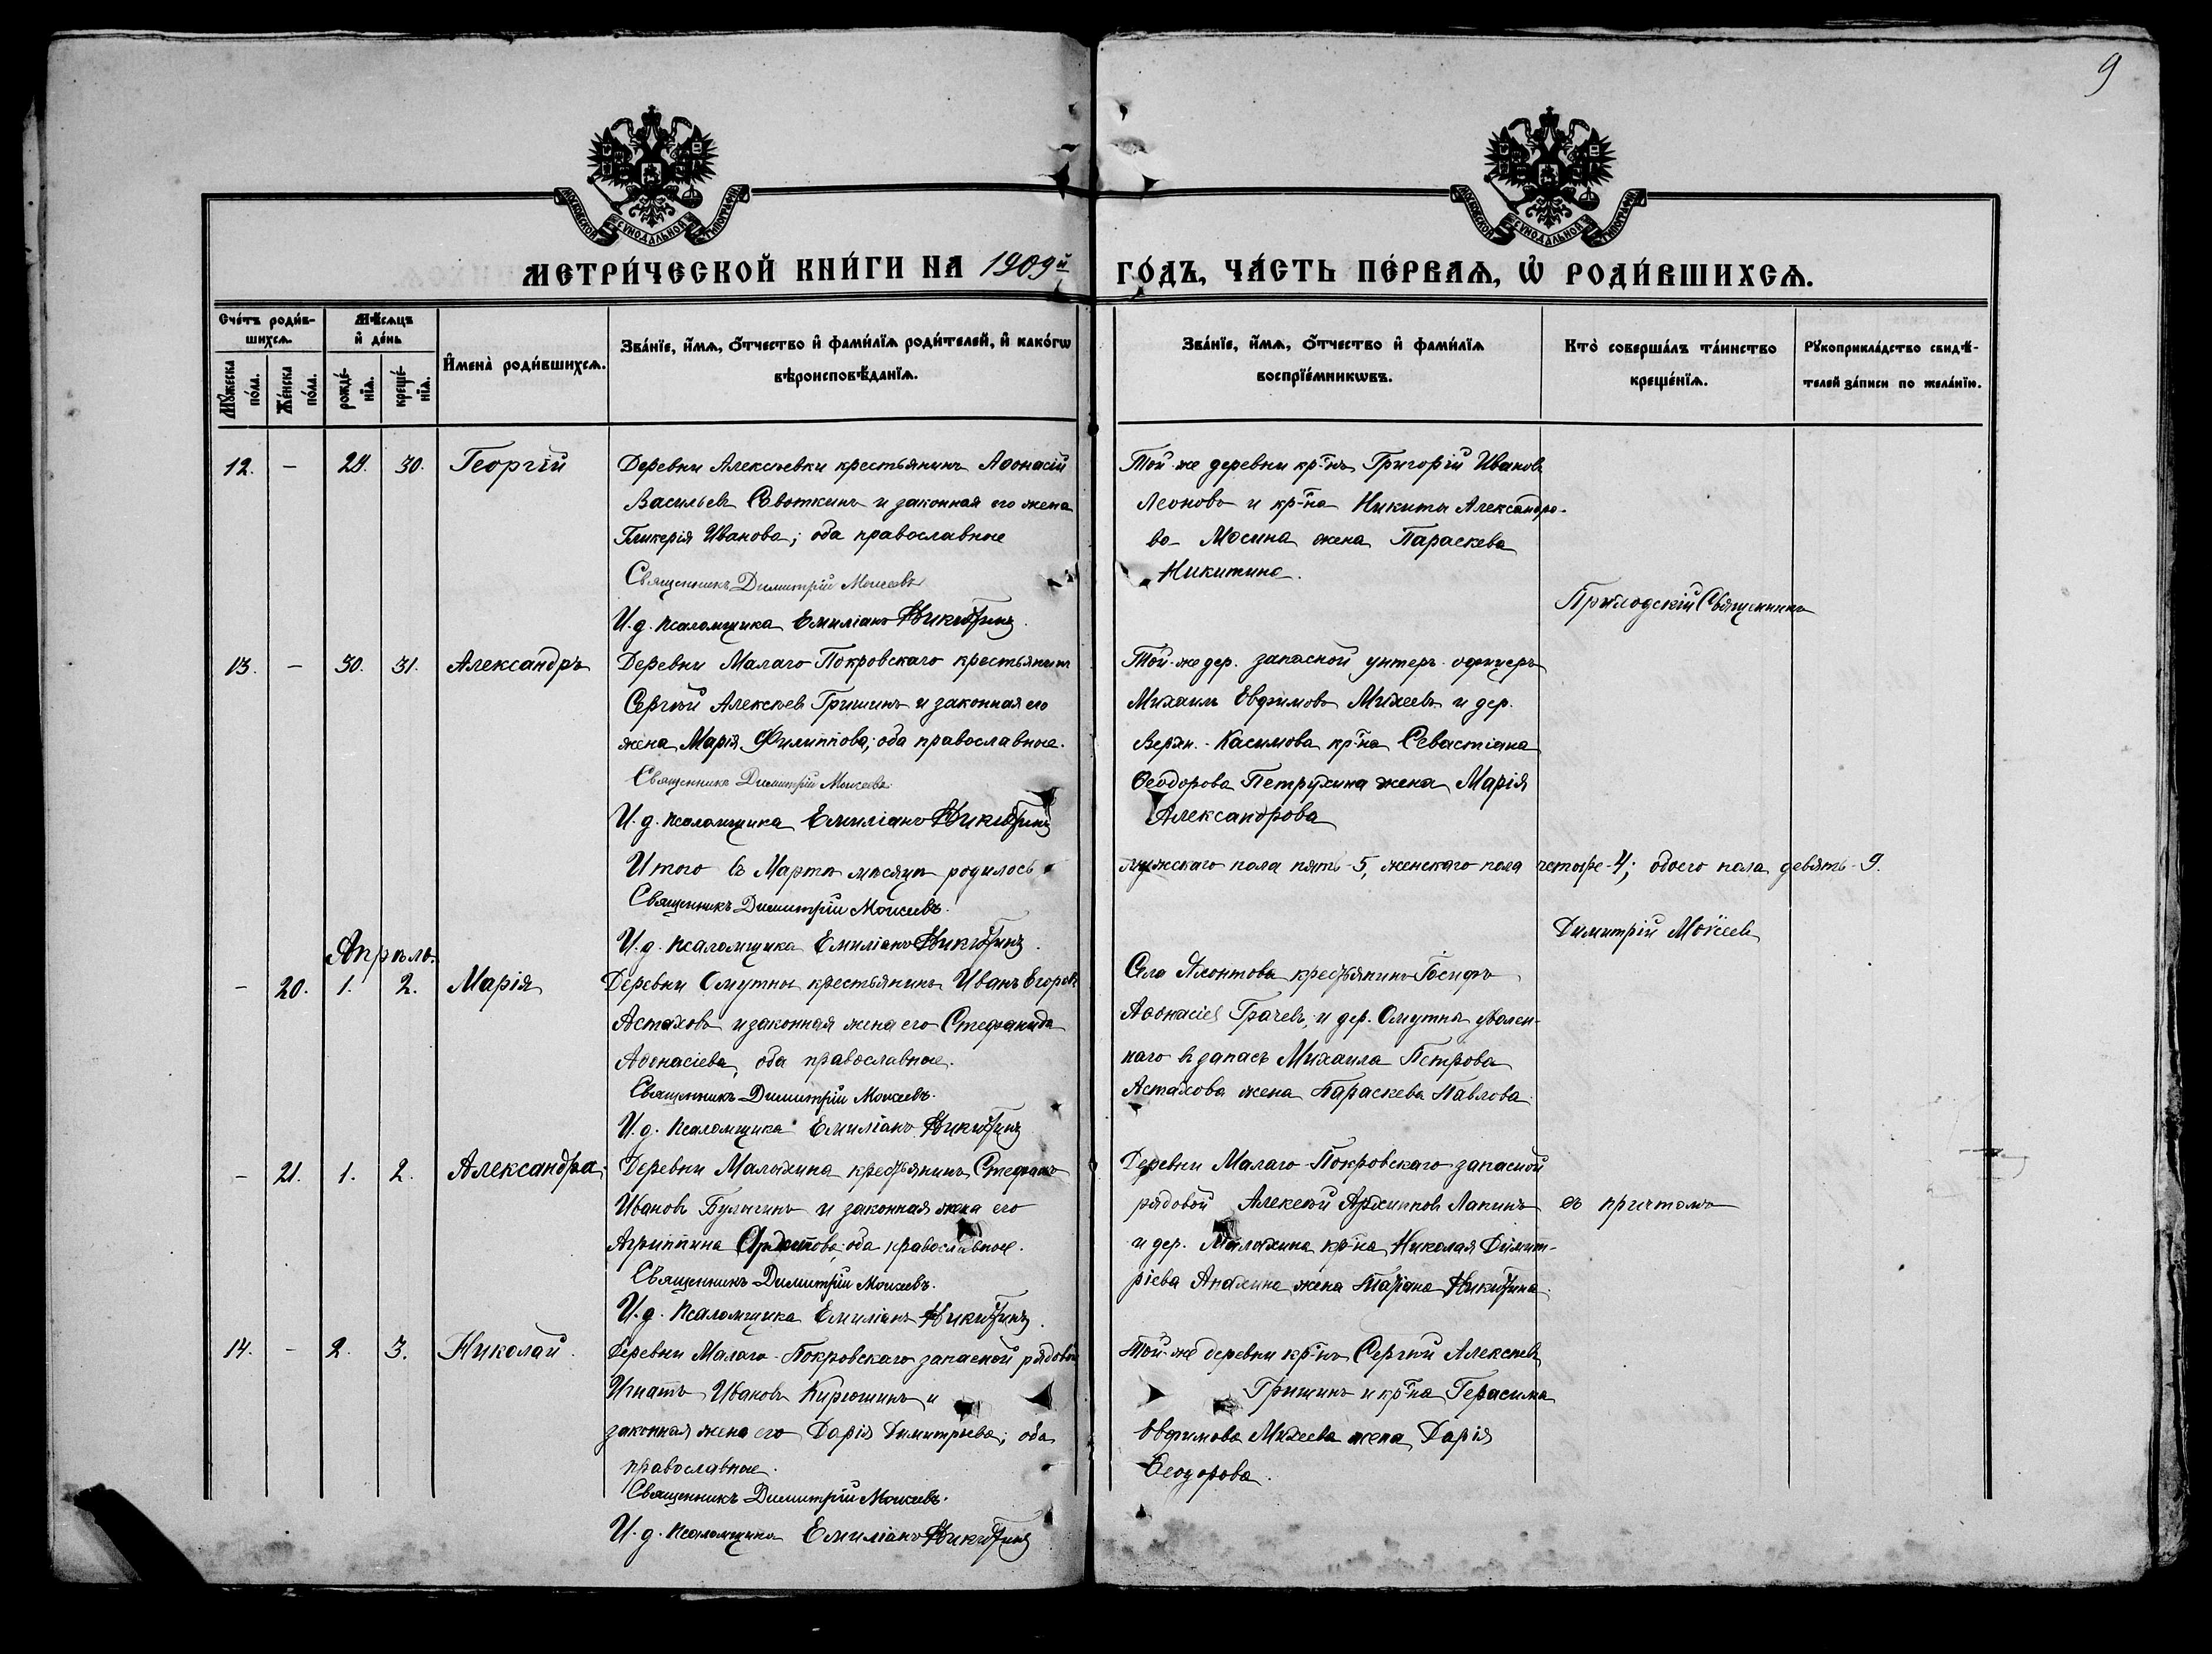 9
МОСКОВСКОЙ СѴНОДАЛЬНОЙ ТИПОГРАФІИ
МОСКОВСКОЙ СѴНОДАЛЬНОЙ ТИПОГРАФІИ
МЕТРИ́ЧЕСКОЙ КНИ́ГИ НА 1909й ГО́ДЪ, ЧА́СТЬ ПЕ́РВАѦ, Ѡ҆ РОДИ́ВШИХСѦ.
Сче́тъ роди́в-
шихсѧ.
Мѣ́сѧцъ
и҆ де́нь
Мꙋ́жеска по́ла.
Же́нска по́ла.
рожде́-
нїѧ.
креще́-
нїѧ.
И҆мена̀ роди́вшихсѧ.
Зва́нїе, и҆́мѧ, ѻ҆́тчество и҆ фами́лїѧ роди́телей, и҆ како́гѡ
вѣроисповѣ́данїѧ.
Зва́нїе, и҆́мѧ, ѻ҆́тчество и҆ фами́лїѧ
воспрїе́мникѡвъ.
Кто̀ соверша́лъ та́инство
креще́нїѧ.
Рꙋкоприкла́дство свидѣ́-
телей за́писи по жела́нїю.
12. - 29. 30. Георгій
Деревни Алексѣевки крестьянинъ Аѳонасій
Васильевъ Сивоткинъ и законная его жена
Гликерія Иванова; оба православные
Священникъ Димитрій Моисеевъ
И. д. псаломщика Емиліанъ Никитинъ.
Той-же деревни кр-нъ Григорій Ивановъ
Леоновъ и кр-на Никиты Александро-
ва Мосина жена Параскева
Никитина.
Приходскій Священникъ
13. - 30. 31. Александръ
Деревни Малаго Покровскаго крестьянинъ
Сергѣй Алексѣевъ Гришинъ и законная его
жена Марія Филиппова; оба православные.
Священникъ Димитрій Моисеевъ
И. д. псаломщика Емиліанъ Никитинъ
Той-же дер. запасной унтеръ-офицеръ
Михаилъ Евфимовъ Михеевъ и дер.
Верхн.-Касимова кр-на Севастіана
Ѳеодорова Петрухина жена Марія
Александрова
Итого въ Мартѣ мѣсяцѣ родилось мужскаго пола пять-5, женскаго пола четыре-4; обоего пола девять-9.
Священникъ Димитрій Моисеевъ.
И. д. псаломщика Емиліанъ Никитинъ.
Димитрій Моисеевъ
Апрѣль.
- 20. 1. 2. Марія
Деревни Омутны крестьянинъ Иванъ Егоровъ
Астаховъ и законная жена его Стефанида
Аѳонасіева, оба православные.
Священникъ Димитрій Моисеевъ.
И. д. псаломщика Емиліанъ Никитинъ
Села крестьянинъ Іосифъ
Аѳонасіевъ Грачевъ, и дер. Омутны уволен-
наго в запасъ Михаила Петрова
Астахова жена Параскева Павлова.
- 21. 1. 2. Александра.
Деревни Малахина крестьянинъ Стефанъ
Ивановъ Булыгинъ и законная жена его
Агриппина Архипова; оба православные.
Священникъ Димитрій Моисеевъ.
И. д. псаломщика Емиліанъ Никитинъ.
Деревни Малаго-Покровскаго запасной
рядовой Алексѣй Архиповъ Лапинъ
и дер. Малахина кр-на Николая Димит-
ріева жена Никитина.
съ причтомъ
14. - 2. 3. Николай.
Деревни Малаго-Покровскаго запасной рядовой
Игнатъ Ивановъ Кирюшинъ и
законная жена его Дарія Димитріева; оба
православные.
Священникъ Димитрій Моисеевъ.
И. д. псаломщика Емиліанъ Никитинъ
Той-же деревни кр-нъ Сергѣй Алексѣевъ
Гришинъ и кр-на Герасима
Евфимова Михеева жена Дарія
Ѳеодорова.